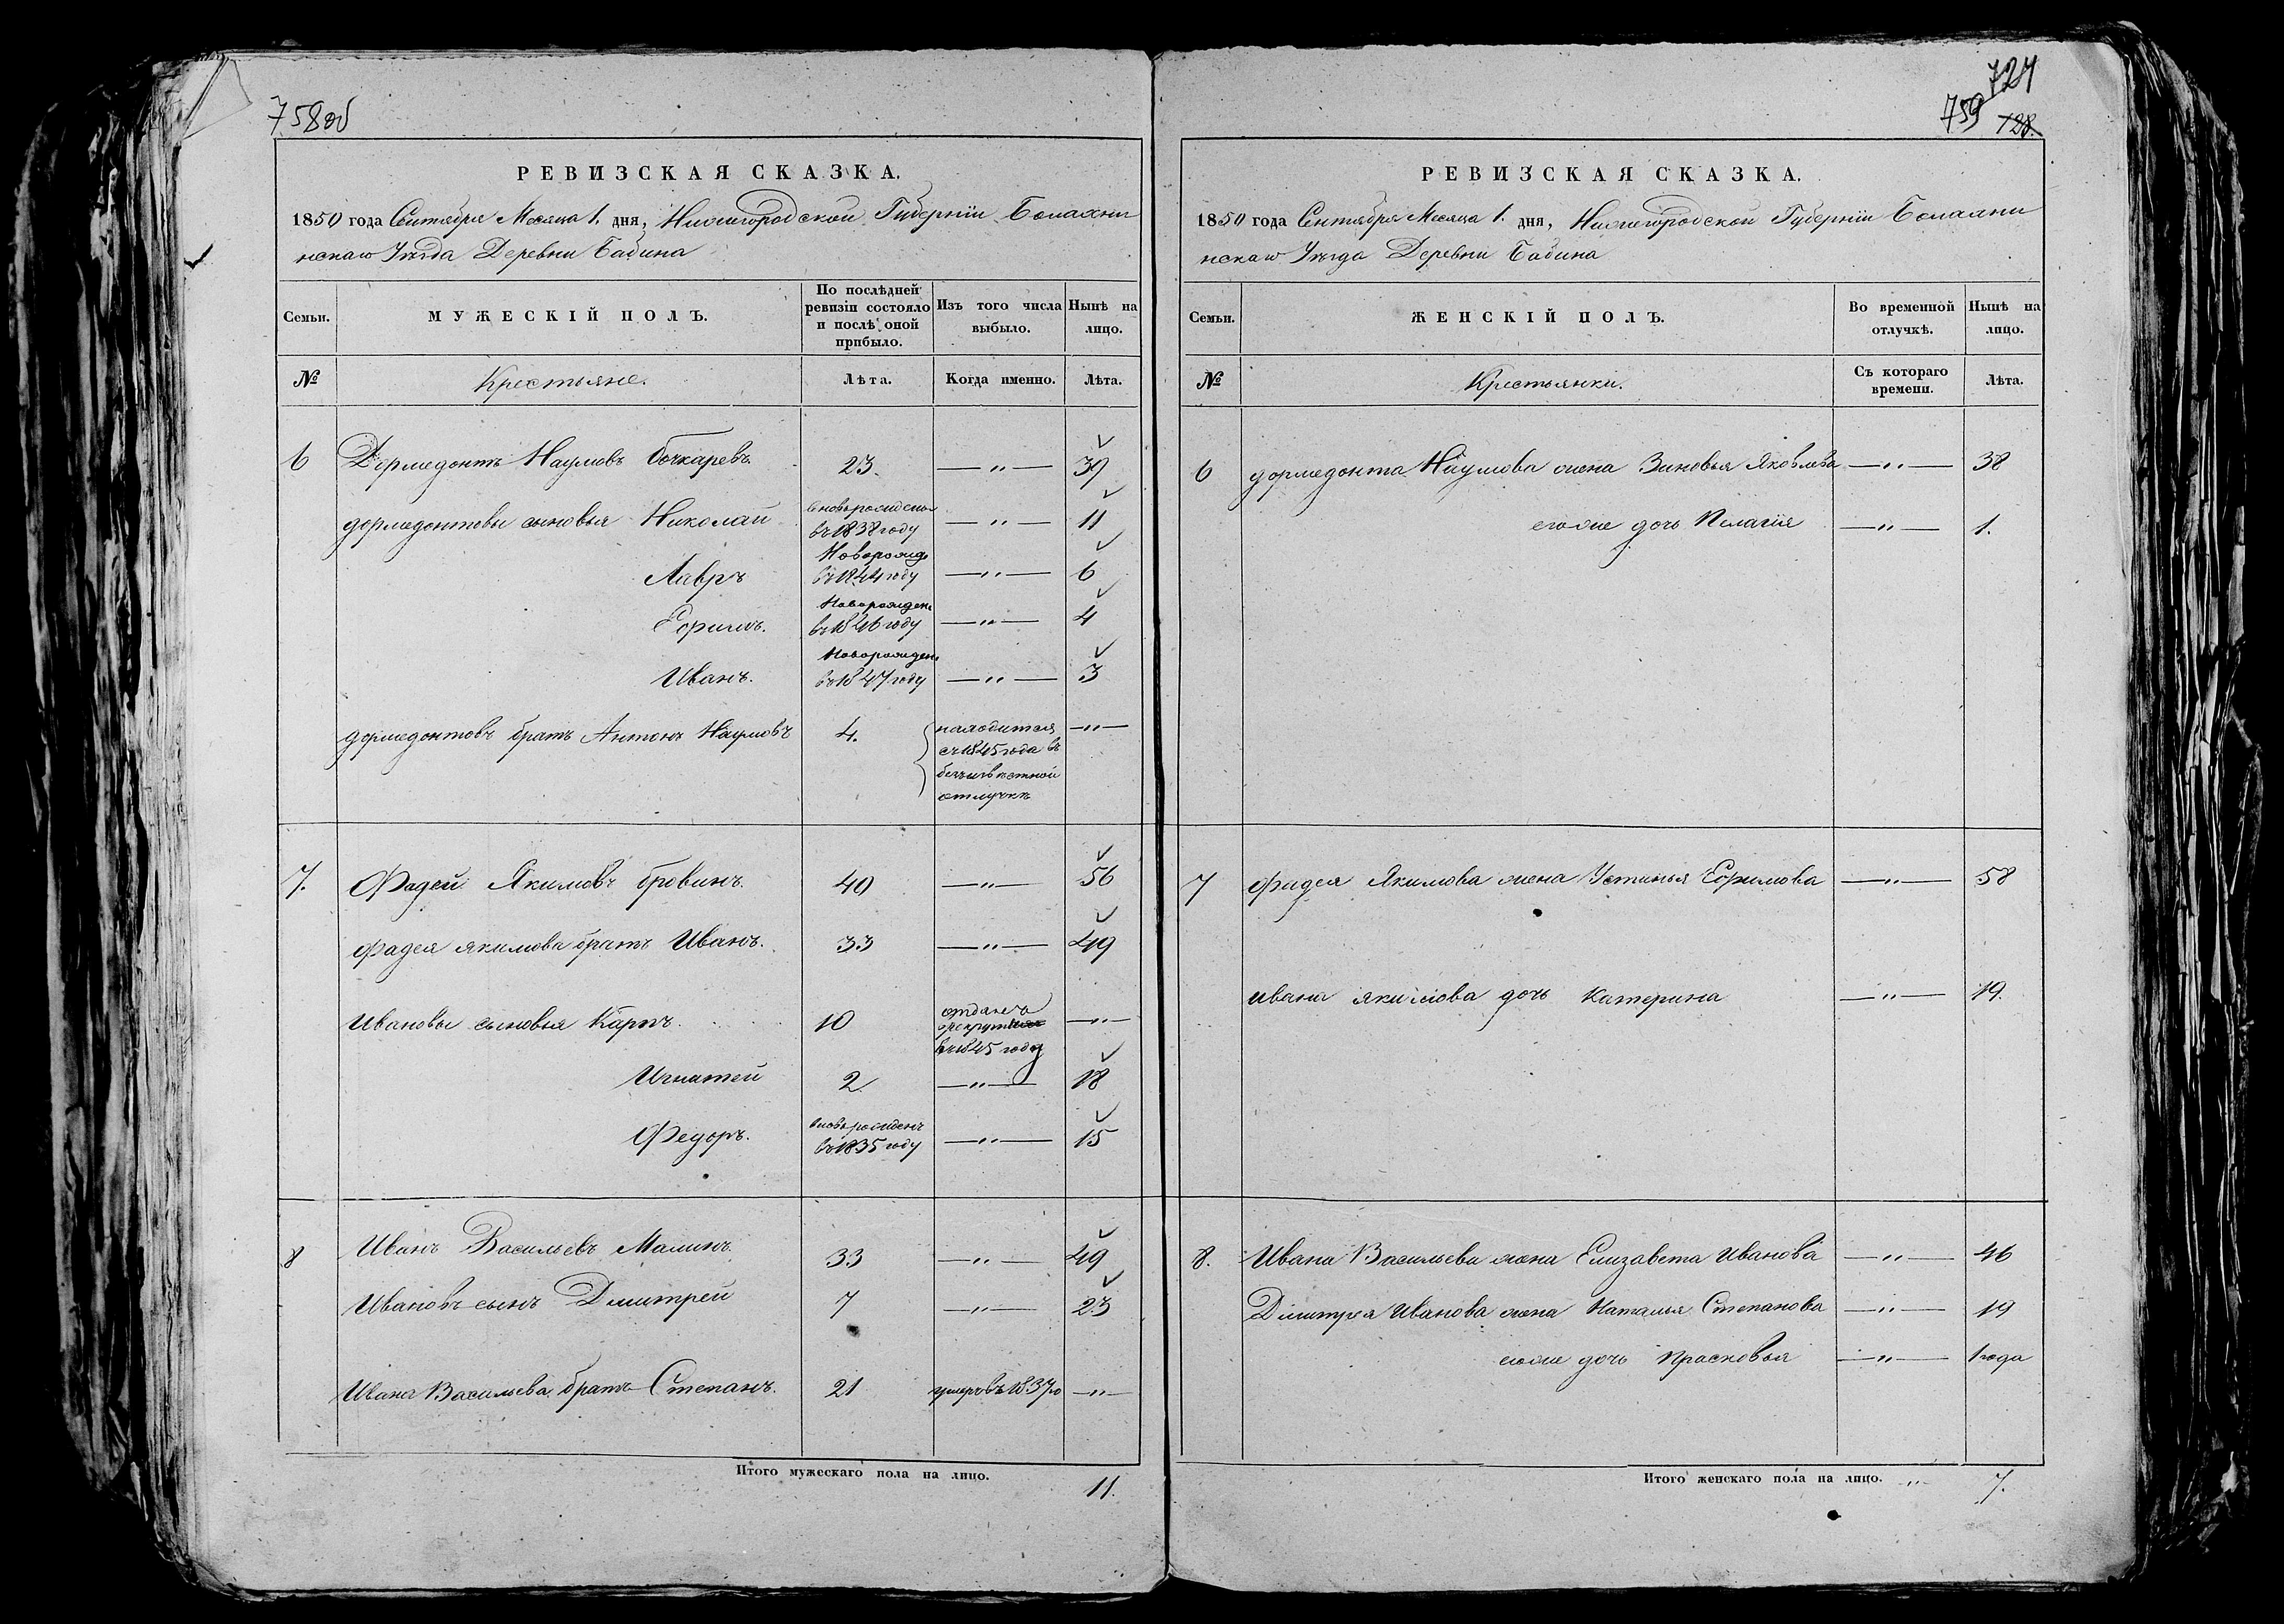 758об
РЕВИЗСКАЯ СКАЗКА.
1850 года Сентября Месяца 1. дня, Нижегородской Губернiи Балахни
нскаго Уѣзда Деревни Бабина
Семьи. МУЖЕСКIЙ ПОЛЪ. По послѣдней ревизiи состояло и послѣ оной прибыло. Изъ того числа выбыло. Нынѣ на лицо.
№ Крестьяне. Лѣта. Когда именно. Лѣта.
6 Дормедонтъ Наумовъ Бочкаревъ. 23. —"— 39
дормедонтовы сыновья Николай вновьрожденъ въ 1838 году —"— 11
Лавръ Новорожд въ 1844 году —"— 6
Ефимъ. Новорожден въ 1846 году —"— 4
Иванъ. Новорожден въ 1847 году —"— 3
дормедонтовъ братъ Антонъ Наумовъ 4. находится съ 1845 года въ безъизвѣстной отлучкѣ —"—
7. Фадей Якимовъ бровинъ. 40 —"— 56
Фадея якимова братъ Иванъ. 33 —"— 49
Ивановы сыновья Карпъ. 10 отданъ в рекруты въ 1845 году —"—
Игнатей 2 —"— 18
Федоръ. вновьрожденъ въ 1835 году —"— 15
8 Иванъ Васильевъ Малинъ. 33 —"— 49
Ивановъ сынъ Дмитрей 7 —"— 23
Ивана Васильева братъ Степанъ. 21 умеръ въ 1837 го —"—
Итого мужескаго пола на лицо. 11.
727
759 728.
РЕВИЗСКАЯ СКАЗКА.
1850 года Сентября Месяца 1. дня, Нижегородской Губернiи Балахни
нскаго Уѣзда Деревни Бабина
Семьи. ЖЕНСКIЙ ПОЛЪ. Во временной отлучкѣ. Нынѣ на лицо.
№ Крестьянки. Съ котораго времени. Лѣта.
6 дормедонта Наумова жена Зиновья Яковлева —"— 38
егоже дочь Пелагiя —"— 1.
7 Фадея Якимова жена Устинья Ефимова —"— 58
ивана якимова дочь Катерина —"— 19.
8. Ивана Васильева жена Елизавета Иванова —"— 46
Дмитрея Иванова жена Наталья Степанова —"— 19
егоже дочь Прасковья —"— 1 года
Итого женскаго пола на лицо. —"— 7.